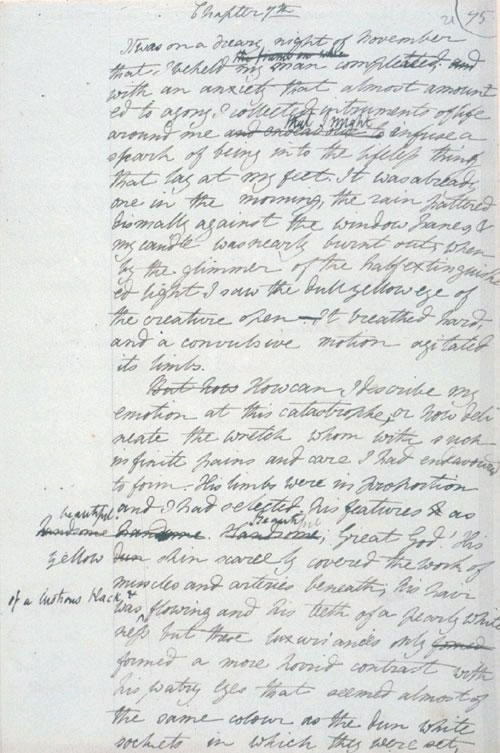 Chapter 7th
21 95
It was on a dreary night of November
the frame on whic
that I beheld my man compleated and
with an anxiety that almost amount
ed to agony I collected instruments of life
that I might
around me and endeavour to infuse a
spark of being into the lifeless thing
that lay at my feet. It was already
one in the morning, the rain pattered
dismally against the window panes &
my candle was nearly burnt out, when
by the glimmer of the half extinguish
ed light I saw the dull yellow eye of
the creature open – It breathed hard,
and a convulsive motion agitated
its limbs.
But how How can I describe my
emotion at this catastrophe, or how deli
neate the wretch whom with such
infinite pains and care I had endeavoured
to form. His limbs were in proportion
and I had selected his features as
beautiful
handsome handsome. Handsome, Beautiful; Great God! His
yellow dun skin scarcely covered the work of
muscles and arteries beneath; his hair
of a lustrous black, &
was flowing and his teeth of a pearly white
ness but these luxuriances only formed
formed a more horrid contrast with
his watry eyes that seemed almost of
the same colour as the dun white
sockets in which they were set